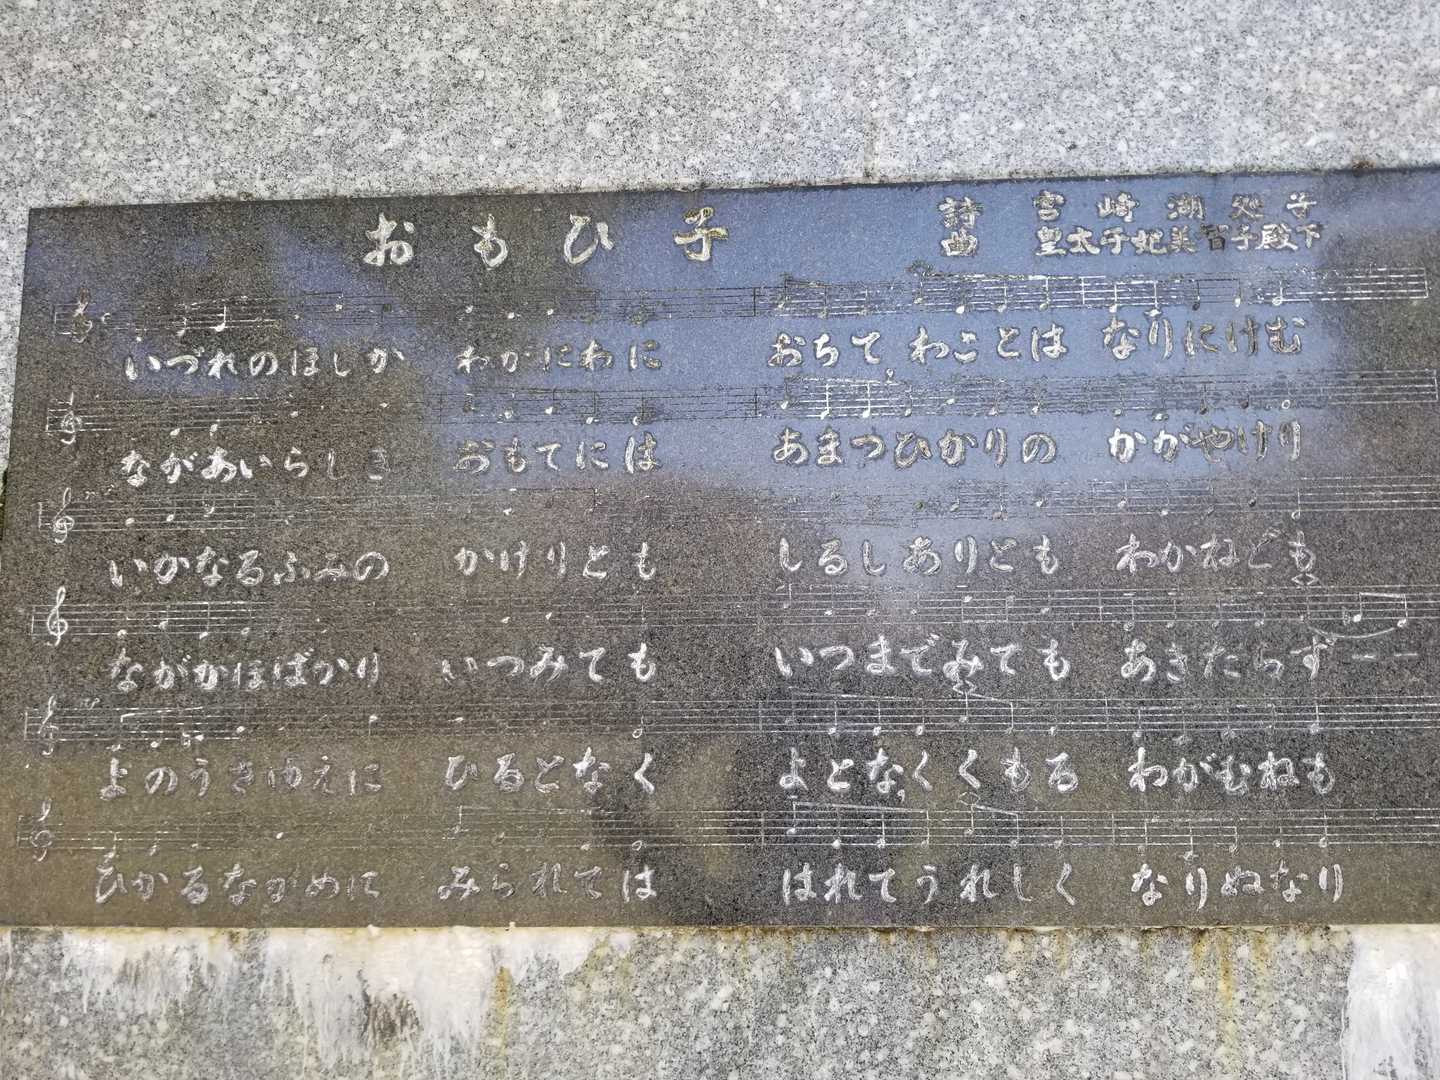 おもひ子
詩 宮崎湖処子
曲 皇太子妃美智子殿下
いづれのほしか わがにわに おちて わことは なりにけむ
ながあいらしき おもてには あまつひかりの かがやけり
いかなるふみの かけりとも しるしありとも わかねども
ながかほばかり いつみても いつまでみても あきたらず--
よのうきゆえに ひるとなく よとなくくもる わがむねも
ひかるながめに みられては はれてうれしく なりぬなり